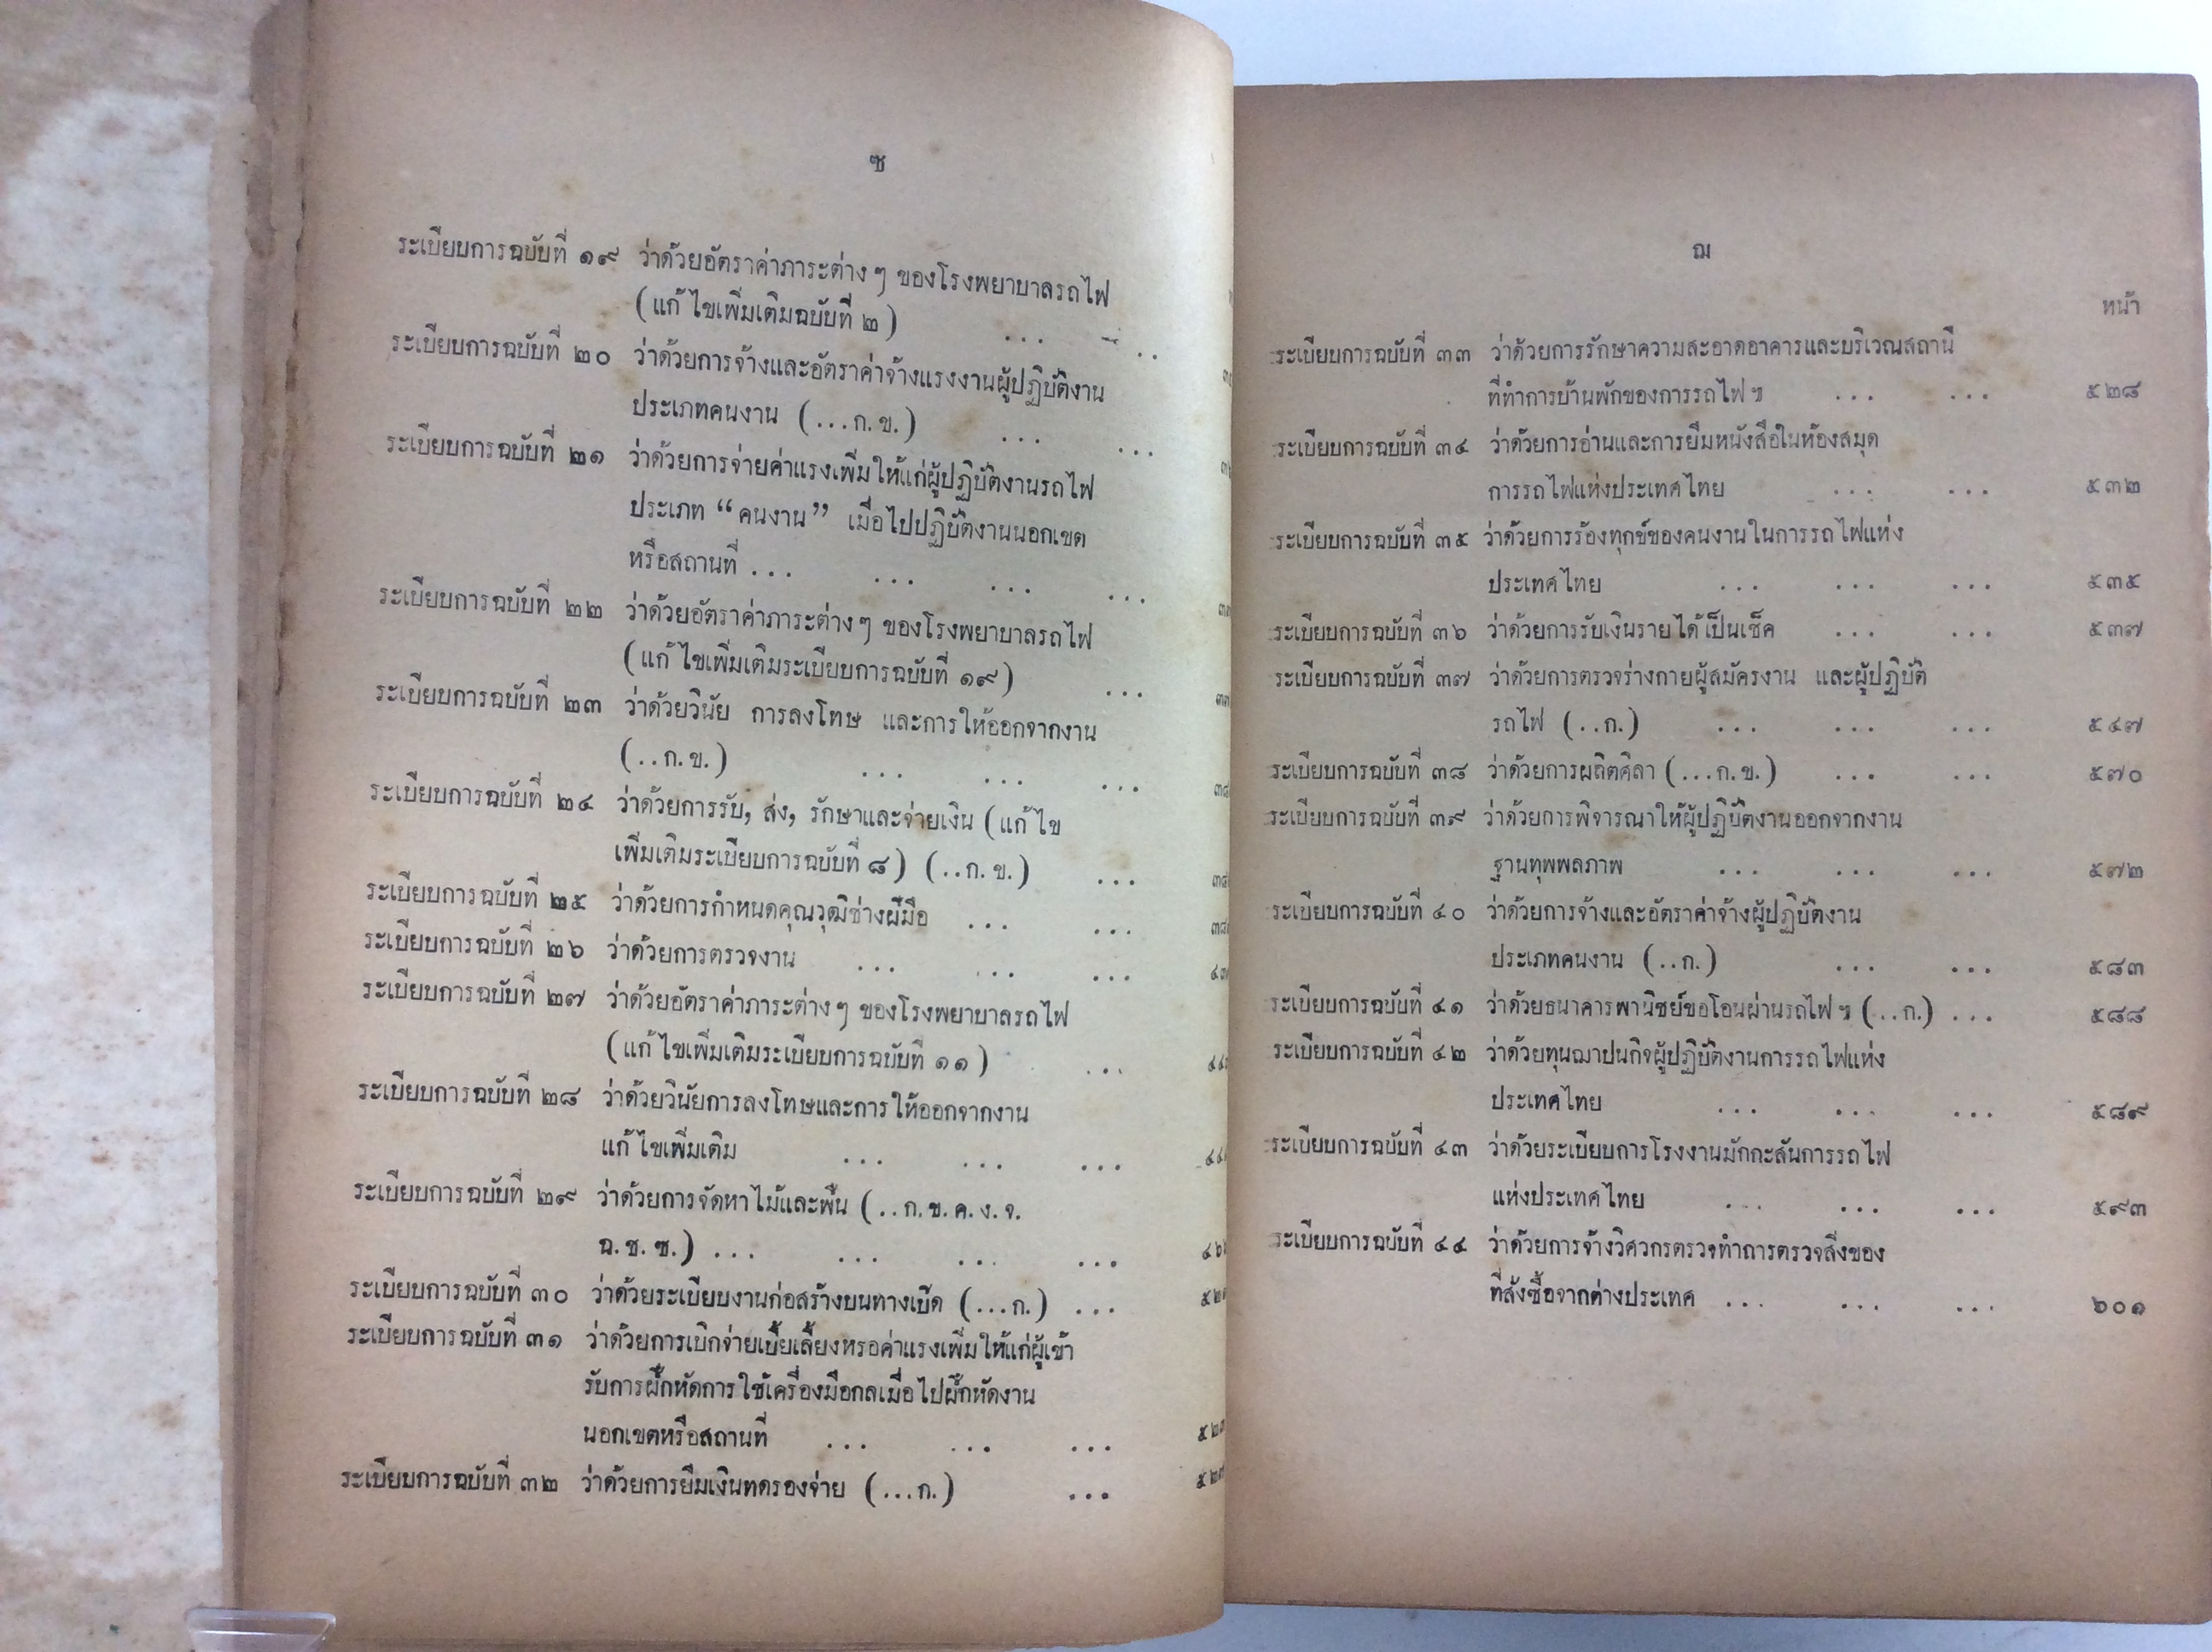 ซ
ระเบียบการฉบับที่ ๑๙ ว่าด้วยอัตราค่าภาระต่าง ๆ ของโรงพยาบาลรถไฟ
(แก้ไขเพิ่มเติมฉบับที่ ๒) ... ...
ระเบียบการฉบับที่ ๒๐ ว่าด้วยการจ้างและอัตราค่าจ้างแรงงานผู้ปฏิบัติงาน
ประเภทคนงาน (...ก.ข.) ... ...
ระเบียบการฉบับที่ ๒๑ ว่าด้วยการจ่ายค่าแรงเพิ่มให้แก่ผู้ปฏิบัติงานรถไฟ
ประเภท “คนงาน” เมื่อไปปฏิบัติงานนอกเขต
หรือสถานที่ ... ... ... ...
ระเบียบการฉบับที่ ๒๒ ว่าด้วยอัตราค่าภาระต่าง ๆ ของโรงพยาบาลรถไฟ
(แก้ไขเพิ่มเติมระเบียบการฉบับที่ ๑๙) ...
ระเบียบการฉบับที่ ๒๓ ว่าด้วยวินัย การลงโทษ และการให้ออกจากงาน
(..ก.ข.) ... ... ...
ระเบียบการฉบับที่ ๒๔ ว่าด้วยการรับ, ส่ง, รักษาและจ่ายเงิน (แก้ไข
เพิ่มเติมระเบียบการฉบับที่ ๘) (..ก.ข.) ...
ระเบียบการฉบับที่ ๒๕ ว่าด้วยการกำหนดคุณวุฒิช่างฝีมือ ... ...
ระเบียบการฉบับที่ ๒๖ ว่าด้วยการตรวจงาน ... ... ...
ระเบียบการฉบับที่ ๒๗ ว่าด้วยอัตราค่าภาระต่าง ๆ ของโรงพยาบาลรถไฟ
(แก้ไขเพิ่มเติมระเบียบการฉบับที่ ๑๑) ...
ระเบียบการฉบับที่ ๒๘ ว่าด้วยวินัยการลงโทษและการให้ออกจากงาน
แก้ไขเพิ่มเติม ... ... ...
ระเบียบการฉบับที่ ๒๙ ว่าด้วยการจัดหาไม้และฟืน (..ก.ข.ค.ง.จ.
ฉ.ช.ซ.) ... ... ... ...
ระเบียบการฉบับที่ ๓๐ ว่าด้วยระเบียบงานก่อสร้างบนทางเปิด (...ก.) ...
ระเบียบการฉบับที่ ๓๑ ว่าด้วยการเบิกจ่ายเบี้ยเลี้ยงหรอค่าแรงเพิ่มให้แก่ผู้เข้า
รับการฝึกหัดการใช้เครื่องมือกลเมื่อไปฝึกหัดงาน
นอกเขตหรือสถานที่ ... ... ...
ระเบียบการฉบับที่ ๓๒ ว่าด้วยการยืมเงินทดรองจ่าย (...ก.) ...
ฌ
หน้า
ระเบียบการฉบับที่ ๓๓ ว่าด้วยการรักษาความสะอาดอาคารและบริเวณสถานี
ที่ทำการบ้านพักของการรถไฟฯ ... ... ๕๒๘
ระเบียบการฉบับที่ ๓๔ ว่าด้วยการอ่านและการยืมหนังสือในห้องสมุด
การรถไฟแห่งประเทศไทย ... ... ๕๓๒
ระเบียบการฉบับที่ ๓๕ ว่าด้วยการร้องทุกข์ของคนงานในการรถไฟแห่ง
ประเทศไทย ... ... ... ๕๓๕
ระเบียบการฉบับที่ ๓๖ ว่าด้วยการรับเงินรายได้เป็นเช็ค ... ... ๕๓๗
ระเบียบการฉบับที่ ๓๗ ว่าด้วยการตรวจร่างกายผู้สมัครงาน และผู้ปฏิบัติ
รถไฟ (..ก.) ... ... ... ๕๔๗
ระเบียบการฉบับที่ ๓๘ ว่าด้วยการผลิตศิลา (...ก.ข.) ... ... ๕๗๐
ระเบียบการฉบับที่ ๓๙ ว่าด้วยการพิจารณาให้ผู้ปฏิบัติงานออกจากงาน
ฐานทุพพลภาพ ... ... ... ๕๗๒
ระเบียบการฉบับที่ ๔๐ ว่าด้วยการจ้างและอัตราค่าจ้างผู้ปฏิบัติงาน
ประเภทคนงาน (..ก.) ... ... ๕๘๓
ระเบียบการฉบับที่ ๔๑ ว่าด้วยธนาคารพานิชย์ขอโอนผ่านรถไฟฯ (...ก.) ... ๕๘๘
ระเบียบการฉบับที่ ๔๒ ว่าด้วยทุนฌาปนกิจผู้ปฏิบัติงานการรถไฟแห่ง
ประเทศไทย ... ... ... ๕๘๙
ระเบียบการฉบับที่ ๔๓ ว่าด้วยระเบียบการโรงงานมักกะสันการรถไฟ
แห่งประเทศไทย ... ... ... ๕๙๓
ระเบียบการฉบับที่ ๔๔ ว่าด้วยการจ้างวิศวกรตรวจทำการตรวจสิ่งของ
ที่สั่งซื้อจากต่างประเทศ ... ... ... ๖๐๑